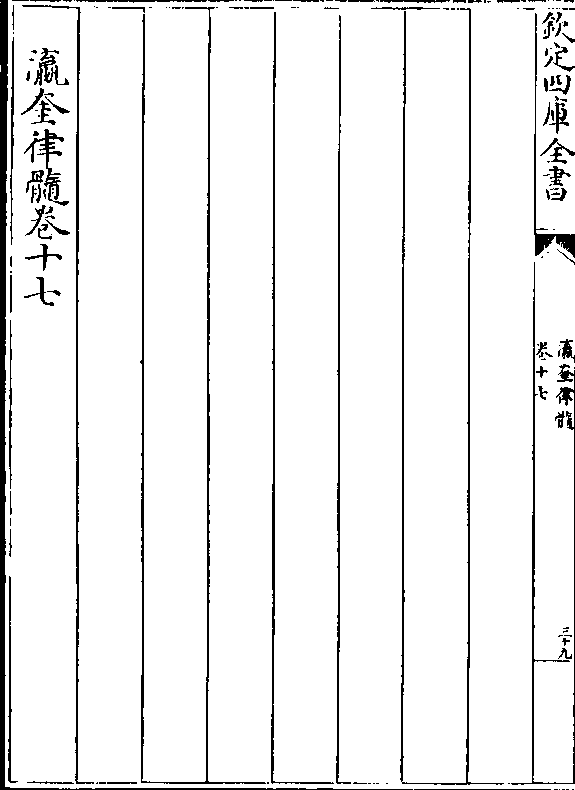 欽定四庫全書
瀛奎律髓
卷十七
三十九
瀛奎律髓卷十七